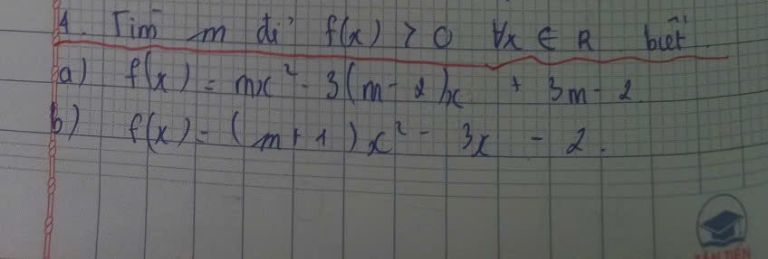 1. Tìm m để f(x) > 0 ∀x ∈ R biết
a) f(x) = mx² - 3(m - 2)x + 3m - 2
b) f(x) = (m + 1)x² - 3x - 2.